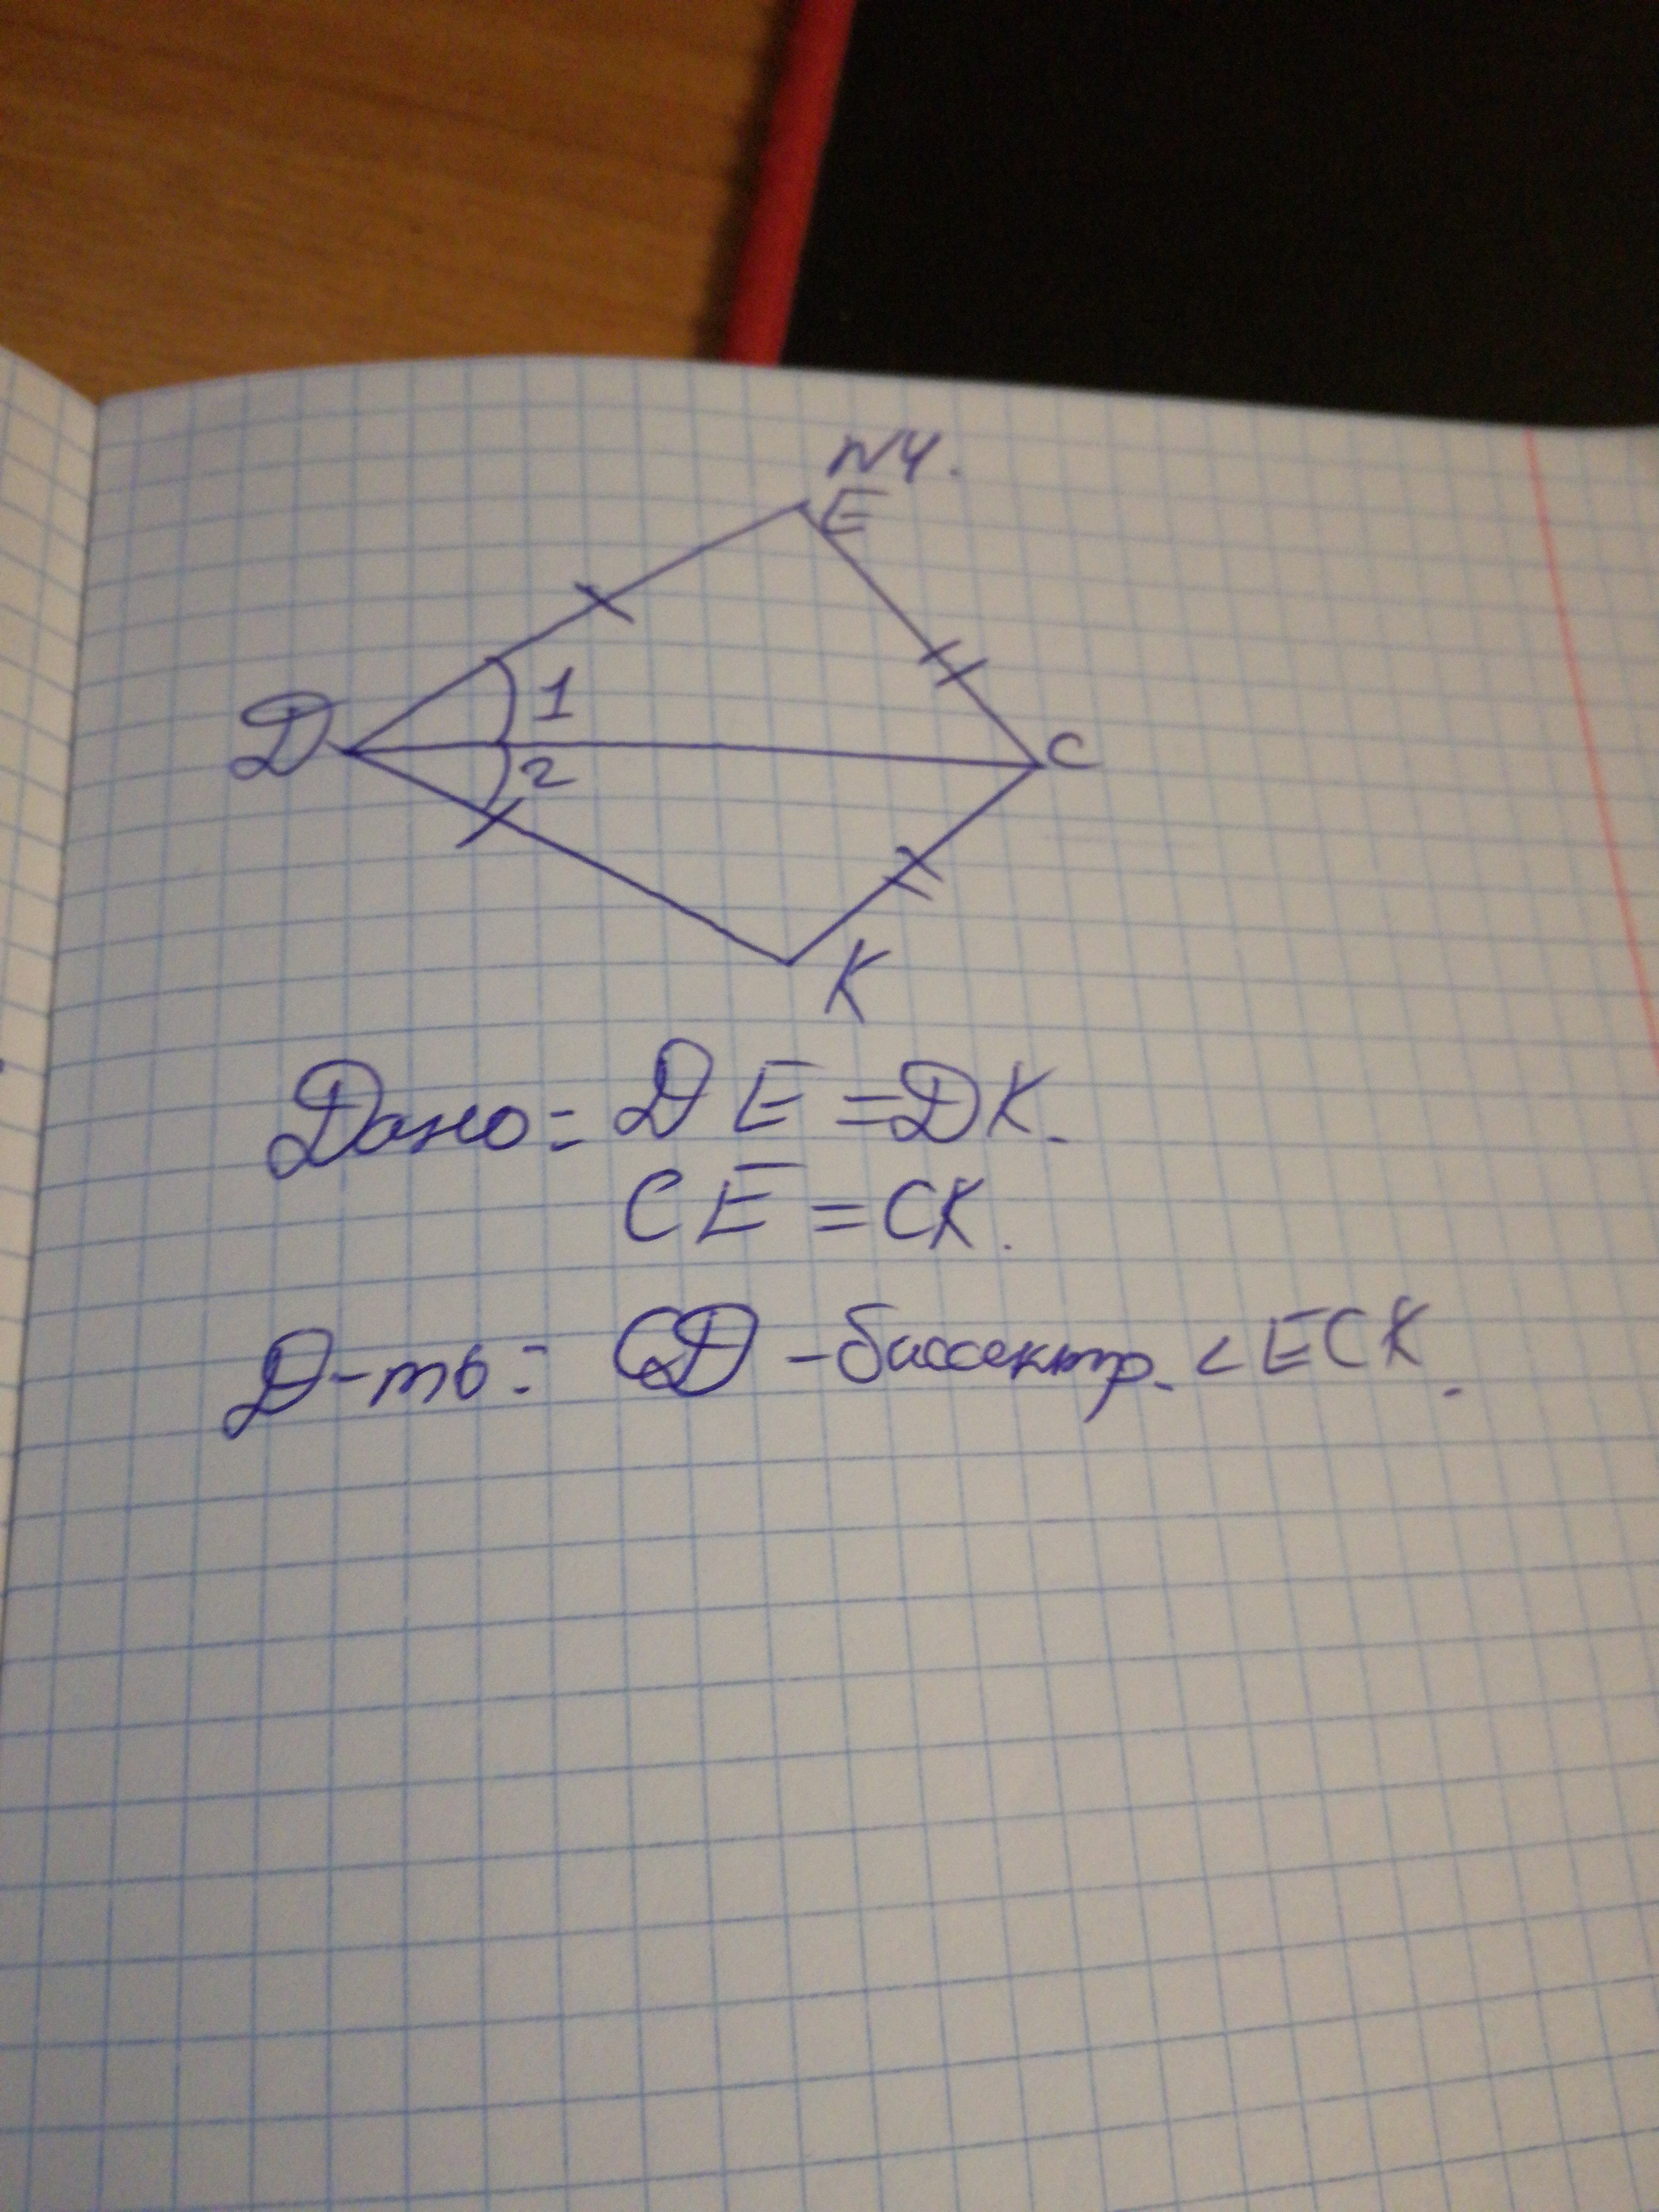 N4.
E
1
D
C
2
K
Дано: DE=DK.
CE=CK.
Д-ть: CD-биссектр. <ECK.